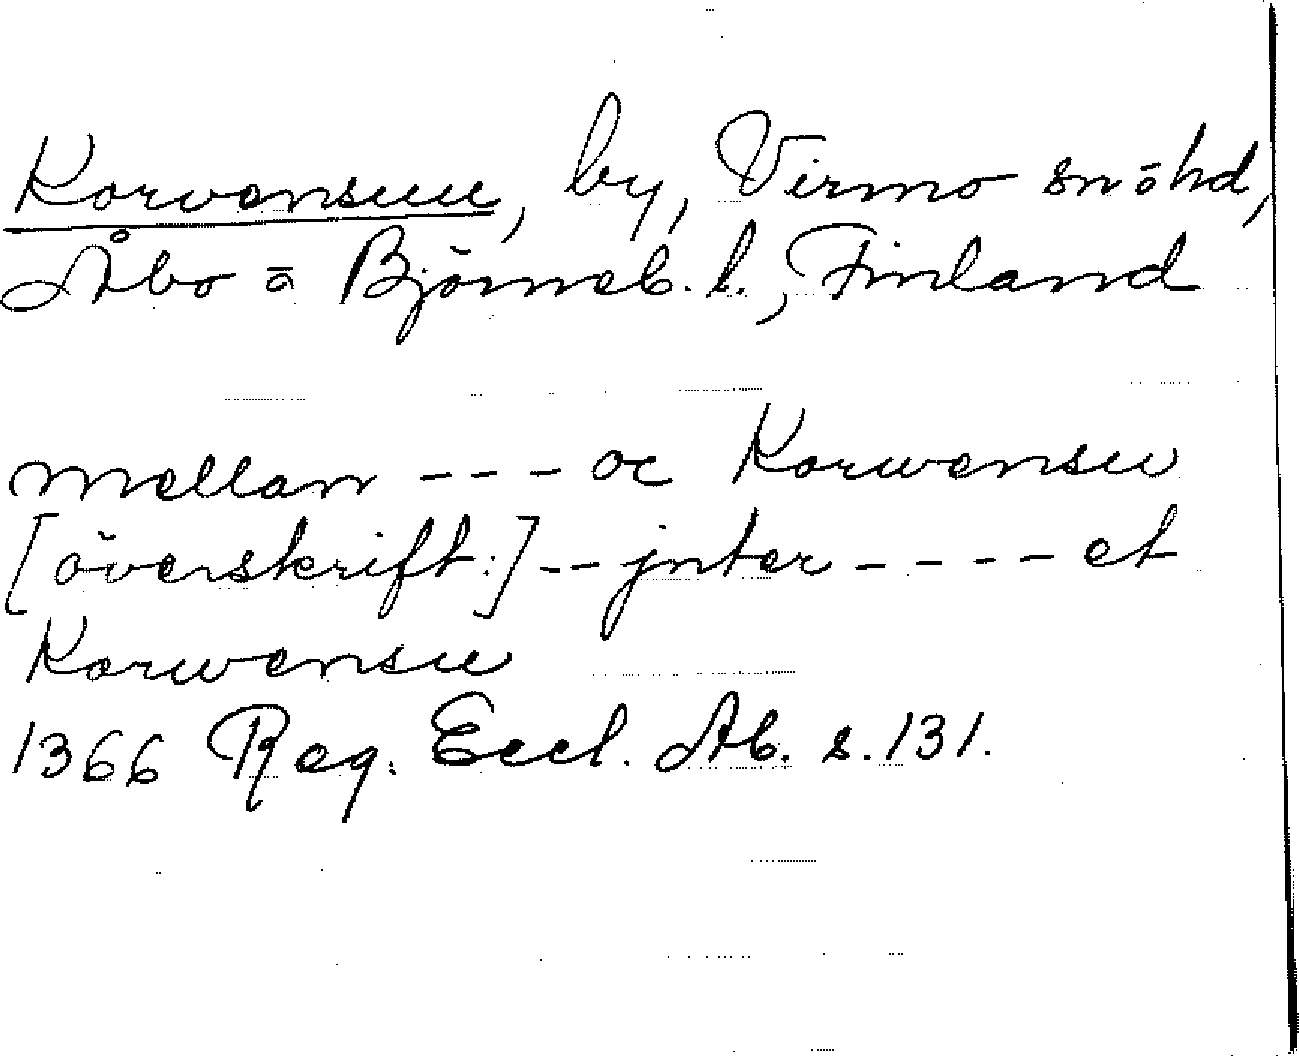 Korvensuu, by, Virmo sn o hd,
Åbo o Björneb. l., Finland
mellan --- oc Korwensu
[överskrift:] -- jnter ---- et
Korwensu
1366 Reg. Eccl. Ab. s. 131.